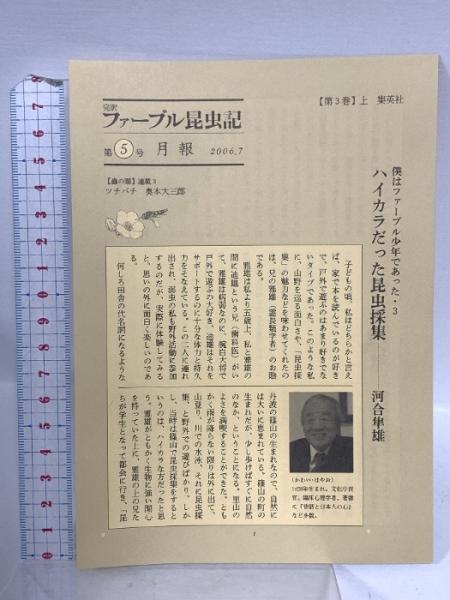 完訳
ファーブル昆虫記
第5号 月報 2006.7
【第3巻】上 集英社
【蟲の眼】連載3
ツチバチ 奥本大三郎
僕はファーブル少年であった・3
ハイカラだった昆虫採集
河合隼雄
子どもの頃、私はどちらかと言え
ば、家で本を読んでいるのが好き
で、戸外で遊ぶのはあまり好きでな
いタイプであった。このような私
に、山野を巡る面白さや、「昆虫採
集」の魅力などを味わせてくれたの
は、兄の雅雄(霊長類学者)のお陰
である。
雅雄は私より五歳上、私と雅雄の
間に迪雄という兄(歯科医)がい
て、雅雄は病弱なのに、腕白大将で
戸外で遊ぶの大好き、迪雄はそれを
サポートするのに十分な体力と持久
力をそなえている。この二人に連れ
出され、弱虫の私も野外活動に参加
するのだが、実際に体験してみる
と、思いの外に面白く楽しいのであ
る。
何しろ田舎の代名詞になるような
丹波の篠山の生まれなので、自然に
は大いに恵まれている。篠山の町の
生まれだが、少し歩けばすぐに自然
のなか、ということになる。里山の
よさを満喫することができた。とも
かく雨が降らない限りは外に出て、
山登り、川での水泳、それに昆虫採
集、と野外での遊びばかり。しか
し、当時は篠山で昆虫採集をすると
いうのは、ハイカラな方だったと思
う。雅雄がともかく生物に強い関心
を持っていた上に、雅雄の上の兄た
ちが学生となって都会に行き、「昆
(かわい・はやお)
1928年生まれ。文化庁長
官。臨床心理学者。著書
に『昔話と日本人の心』
など多数。
1
0 1 2 3 4 5 6 7 8 9 0 1 2 3 4 5 6 7 8